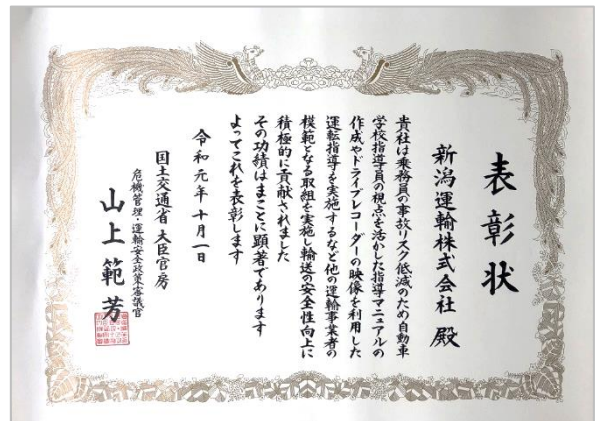 表彰状
新潟運輸株式会社 殿
貴社は乗務員の事故リスク低減のため自動車
学校指導員の視点を活かした指導マニュアルの
作成やドライブレコーダーの映像を利用した
運転指導を実施するなど他の運輸事業者の
模範となる取組を実施し輸送の安全性向上に
積極的に貢献されました
その功績はまことに顕著であります
よってこれを表彰します
令和元年十月一日
国土交通省 大臣官房
危機管理・運輸安全政策審議官
山上範芳